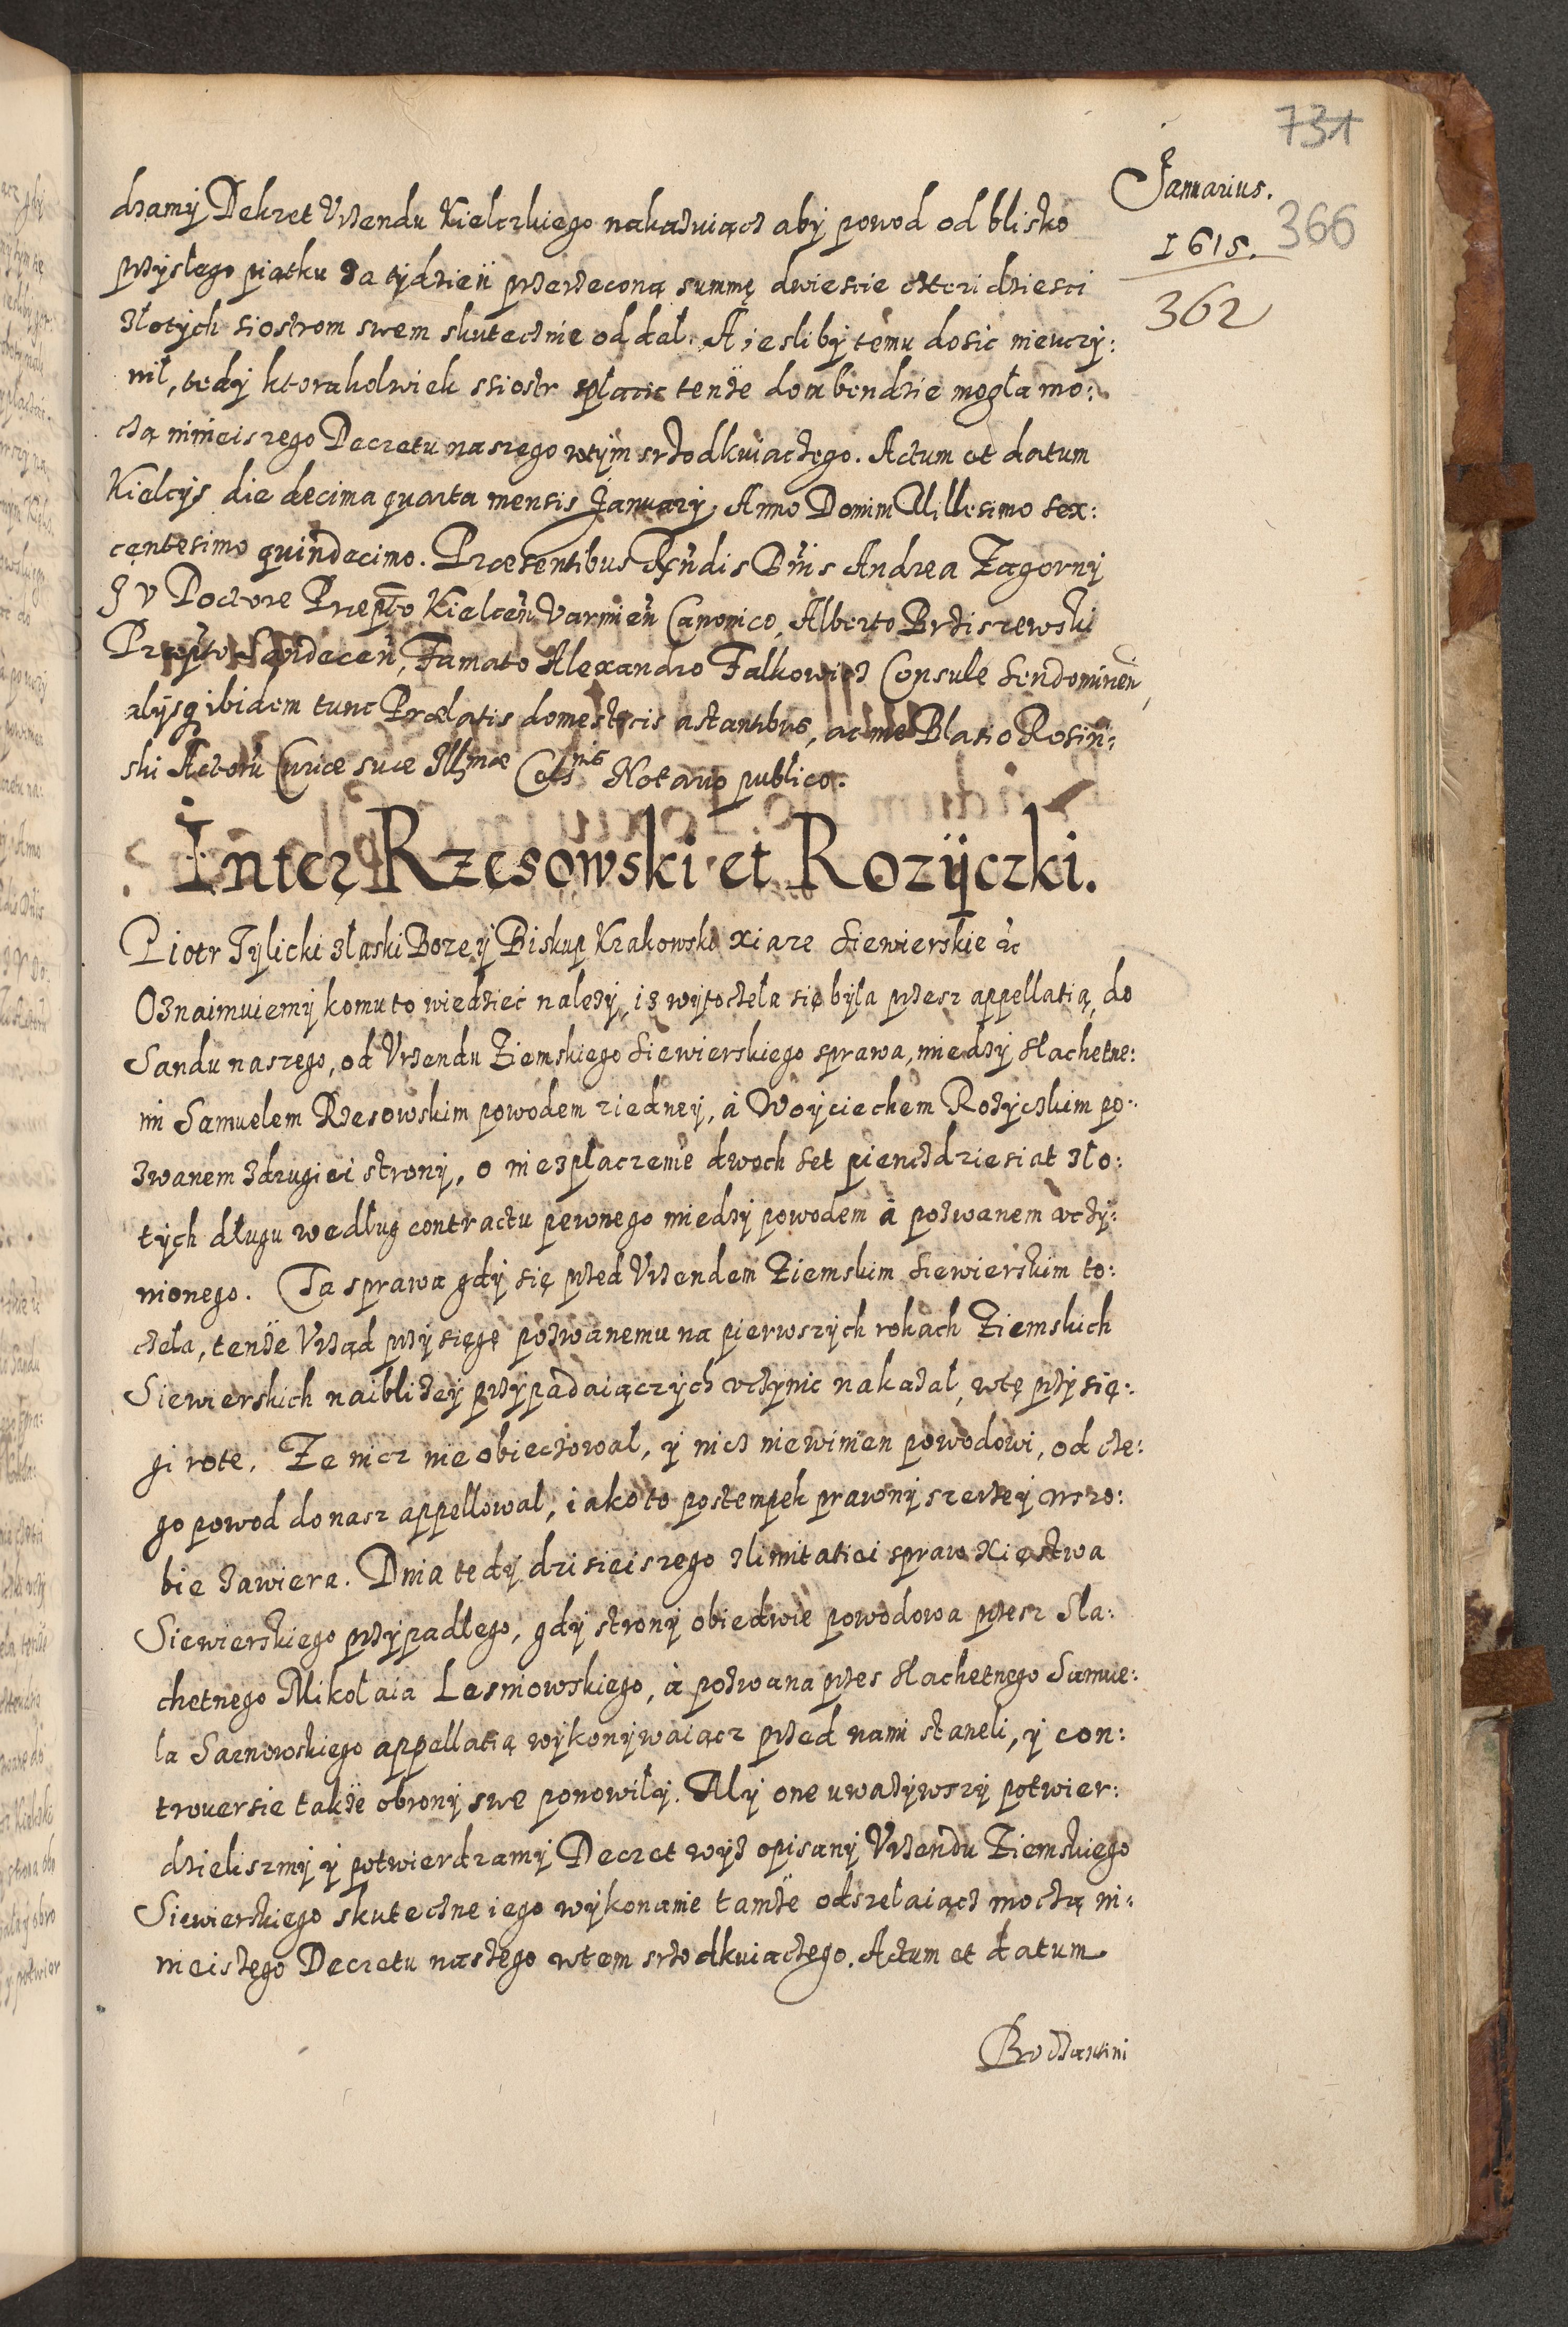 731
Januarius.
1615.
366
362
dzamÿ Dekret Vrzendu Kielczkiego nakazuiącz abÿ powod od blisko
przÿsłego piątku za tÿdzień przerzeconą summę dwiescie czteridziesci
złotÿch siostrom swem skutecznie oddał. A iesli bÿ temu dosić nieuczÿ:
nił, tedÿ ktorakolwiek ssiostr spłacic tenże dom bendzie mogła mo:
czą ninieiszego Decretu naszego wtÿm srzodkuiączego. Actum et datum
Kielcÿs die decima quarta mensis Januarÿ, Anno Domini Millesimo sex:
centesimo quindecimo. Præsentibus Rṇdis Dnis Andrea Zagornÿ
J V Doctore Præpto Kielceñ Varmieñ Canonico, Alberto Brdiszewski
Præpto Sandeceñ, Famato Alexandro Falkowicz Consule Sendomirieñ,
alÿsq ibidem tunc Prælatis domesticis astantibus, ac me Blasio Rosiń:
ski Actorũ Curiæ suæ Illmæ Cels^nis Notario publico.
Inter Rzęsowski et Rozÿczki.
Piotr Tÿlicki złaski Bozeÿ Biskup Krakowski xiąze Siewierskie &c
Oznaimuiemÿ komu to wiedzieć należÿ, iz wÿtoczeła się bÿła przesz appellatią do
Sandu naszego, od Vrzendu Ziemskiego Siewierskiego sprawa, miedzÿ słachetne:
mi Samuelem Rzesowskim powodem ziedneÿ, à Woÿciechem Rozÿczkim po:
zwanem zdrugiei stronÿ, o niezpłaczenie dwoch set pienczdziesiat zło:
tÿch długu według contractu pewnego miedzÿ powodem à pozwanem vczÿ:
nionego. Ta sprawa gdÿ się przed Vrzendem Ziemskim Siewierskim to:
czeła, tenże Vrząd przÿsięgę pozwanemu na pierwszÿch rokach Ziemskich
Siewierskich naiblizeÿ przÿpadaiączÿch vczÿnic nakazał, wtę przÿsię:
gi rotę. Ze nicz nie obieczował, ÿ nicz niewinien powodowi, od cze:
go powod do nasz appellował, iako to postempek prawnÿ szerzeÿ wszo:
bie zawiera. Dnia tedÿ dzisieiszego zlimitatiei spraw Xięstwa
Siewierskiego przÿpadłego, gdÿ stronÿ obiedwie powodowa przesz Sła:
chetnego Mikołaia Lesniowskiego, à pozwana przes słachetnego Samue:
la Sarnowskiego appellatią wÿkonÿwaiącz przed nami staneli, ÿ con:
trouersie także obronÿ swe ponowiłÿ. Mÿ one uważÿwszÿ potwier:
dzieliszmÿ ÿ potwierdzamÿ Decret wÿż opisanÿ Vrzendu Ziemskiego
Siewierskiego skuteczne iego wÿkonanie tamże odszełaiącz moczą ni:
nieiszego Decretu naszego wtem srzodkuiączego. Actum et datum